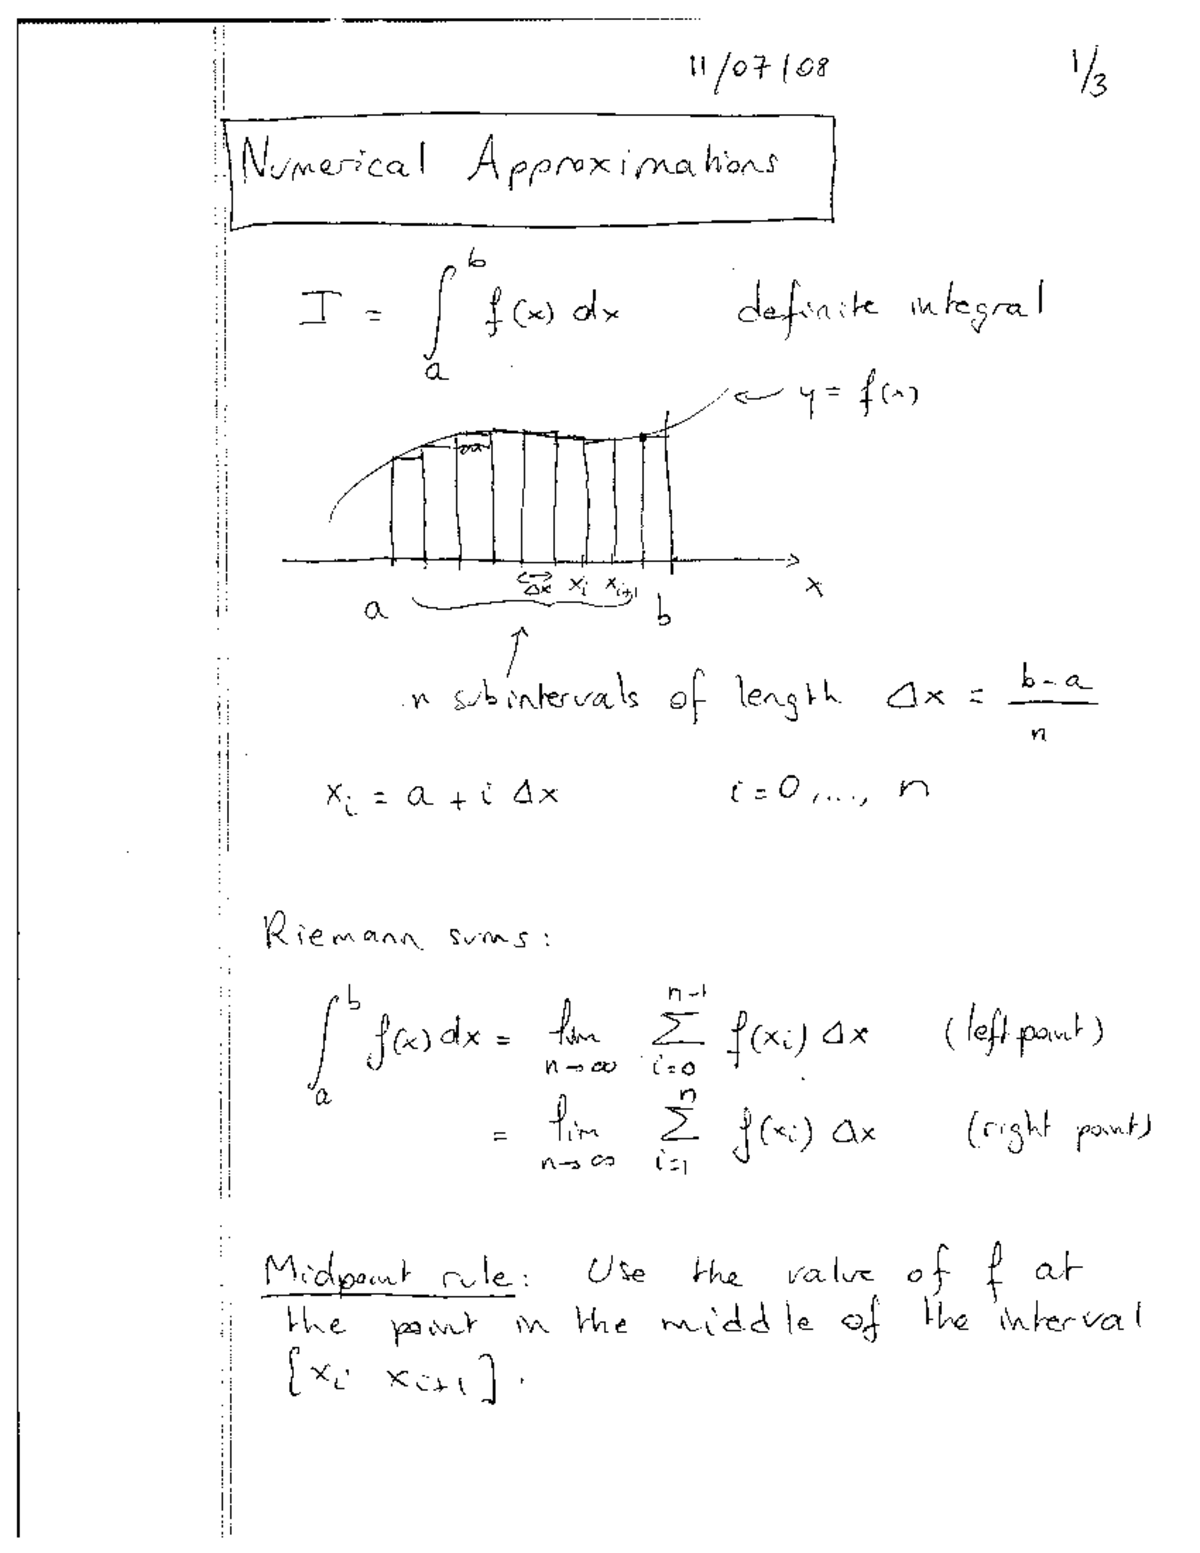 11/07/08 1/3
Numerical Approximations
I = ∫_a^b f(x) dx definite integral
y = f(x)
Δx x_i x_{i+1} x
a b
n subintervals of length Δx = (b-a)/n
x_i = a + i Δx i = 0, ..., n
Riemann sums:
∫_a^b f(x) dx = lim_{n→∞} ∑_{i=0}^{n-1} f(x_i) Δx (left point)
= lim_{n→∞} ∑_{i=1}^{n} f(x_i) Δx (right point)
Midpoint rule: Use the value of f at
the point in the middle of the interval
[x_i x_{i+1}].